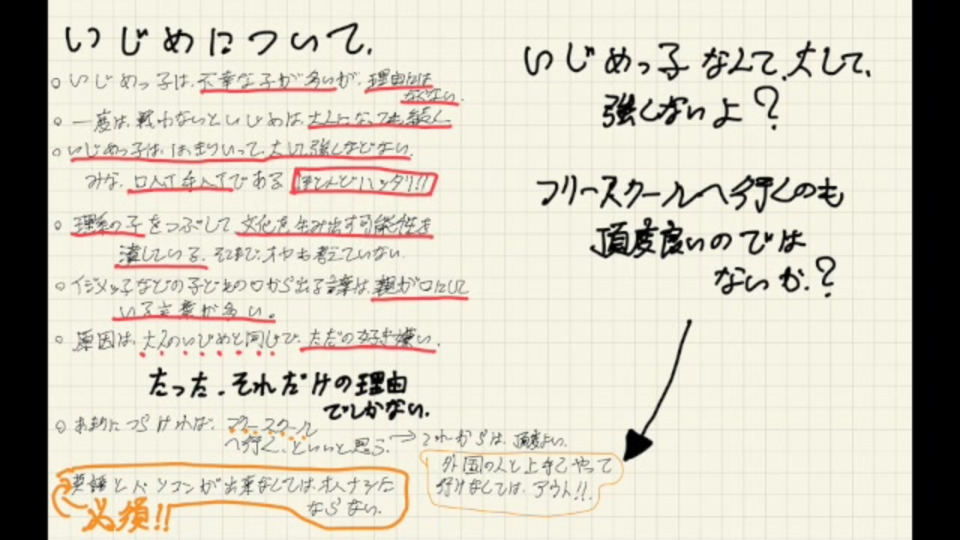 いじめについて.
○いじめっ子は、不幸な子が多いが、理由には
ならない.
○一度は、戦わないといじめは、大人になっても続く
○いじめっ子は、はっきりいって、大して強しなどない.
みな、口人で手人である ほとんどハッタリ!!
○理系の子をつぶして文化を生み出す可能性を
潰している. そこまで、オヤも考えていない
○イジメッ子などの子どもの口から出る言葉は、親が口にして
いる言葉が多い。
○原因は、大人のいじめと同じで、ただの好き嫌い.
たった.それだけの理由
でしかない.
○あまりにつらければ、フリースクール
へ行く、といいと思う.→これからは、頂度よい.
英語とパソコンが出来なくては、オトナに
ならない.
必須!!
いじめっ子なんて、大して、
強しないよ?
フリースクールへ行くのも
頂度良いのでは
ないか.?
外国の人と上手くやって
行けなくては、アウト!!.